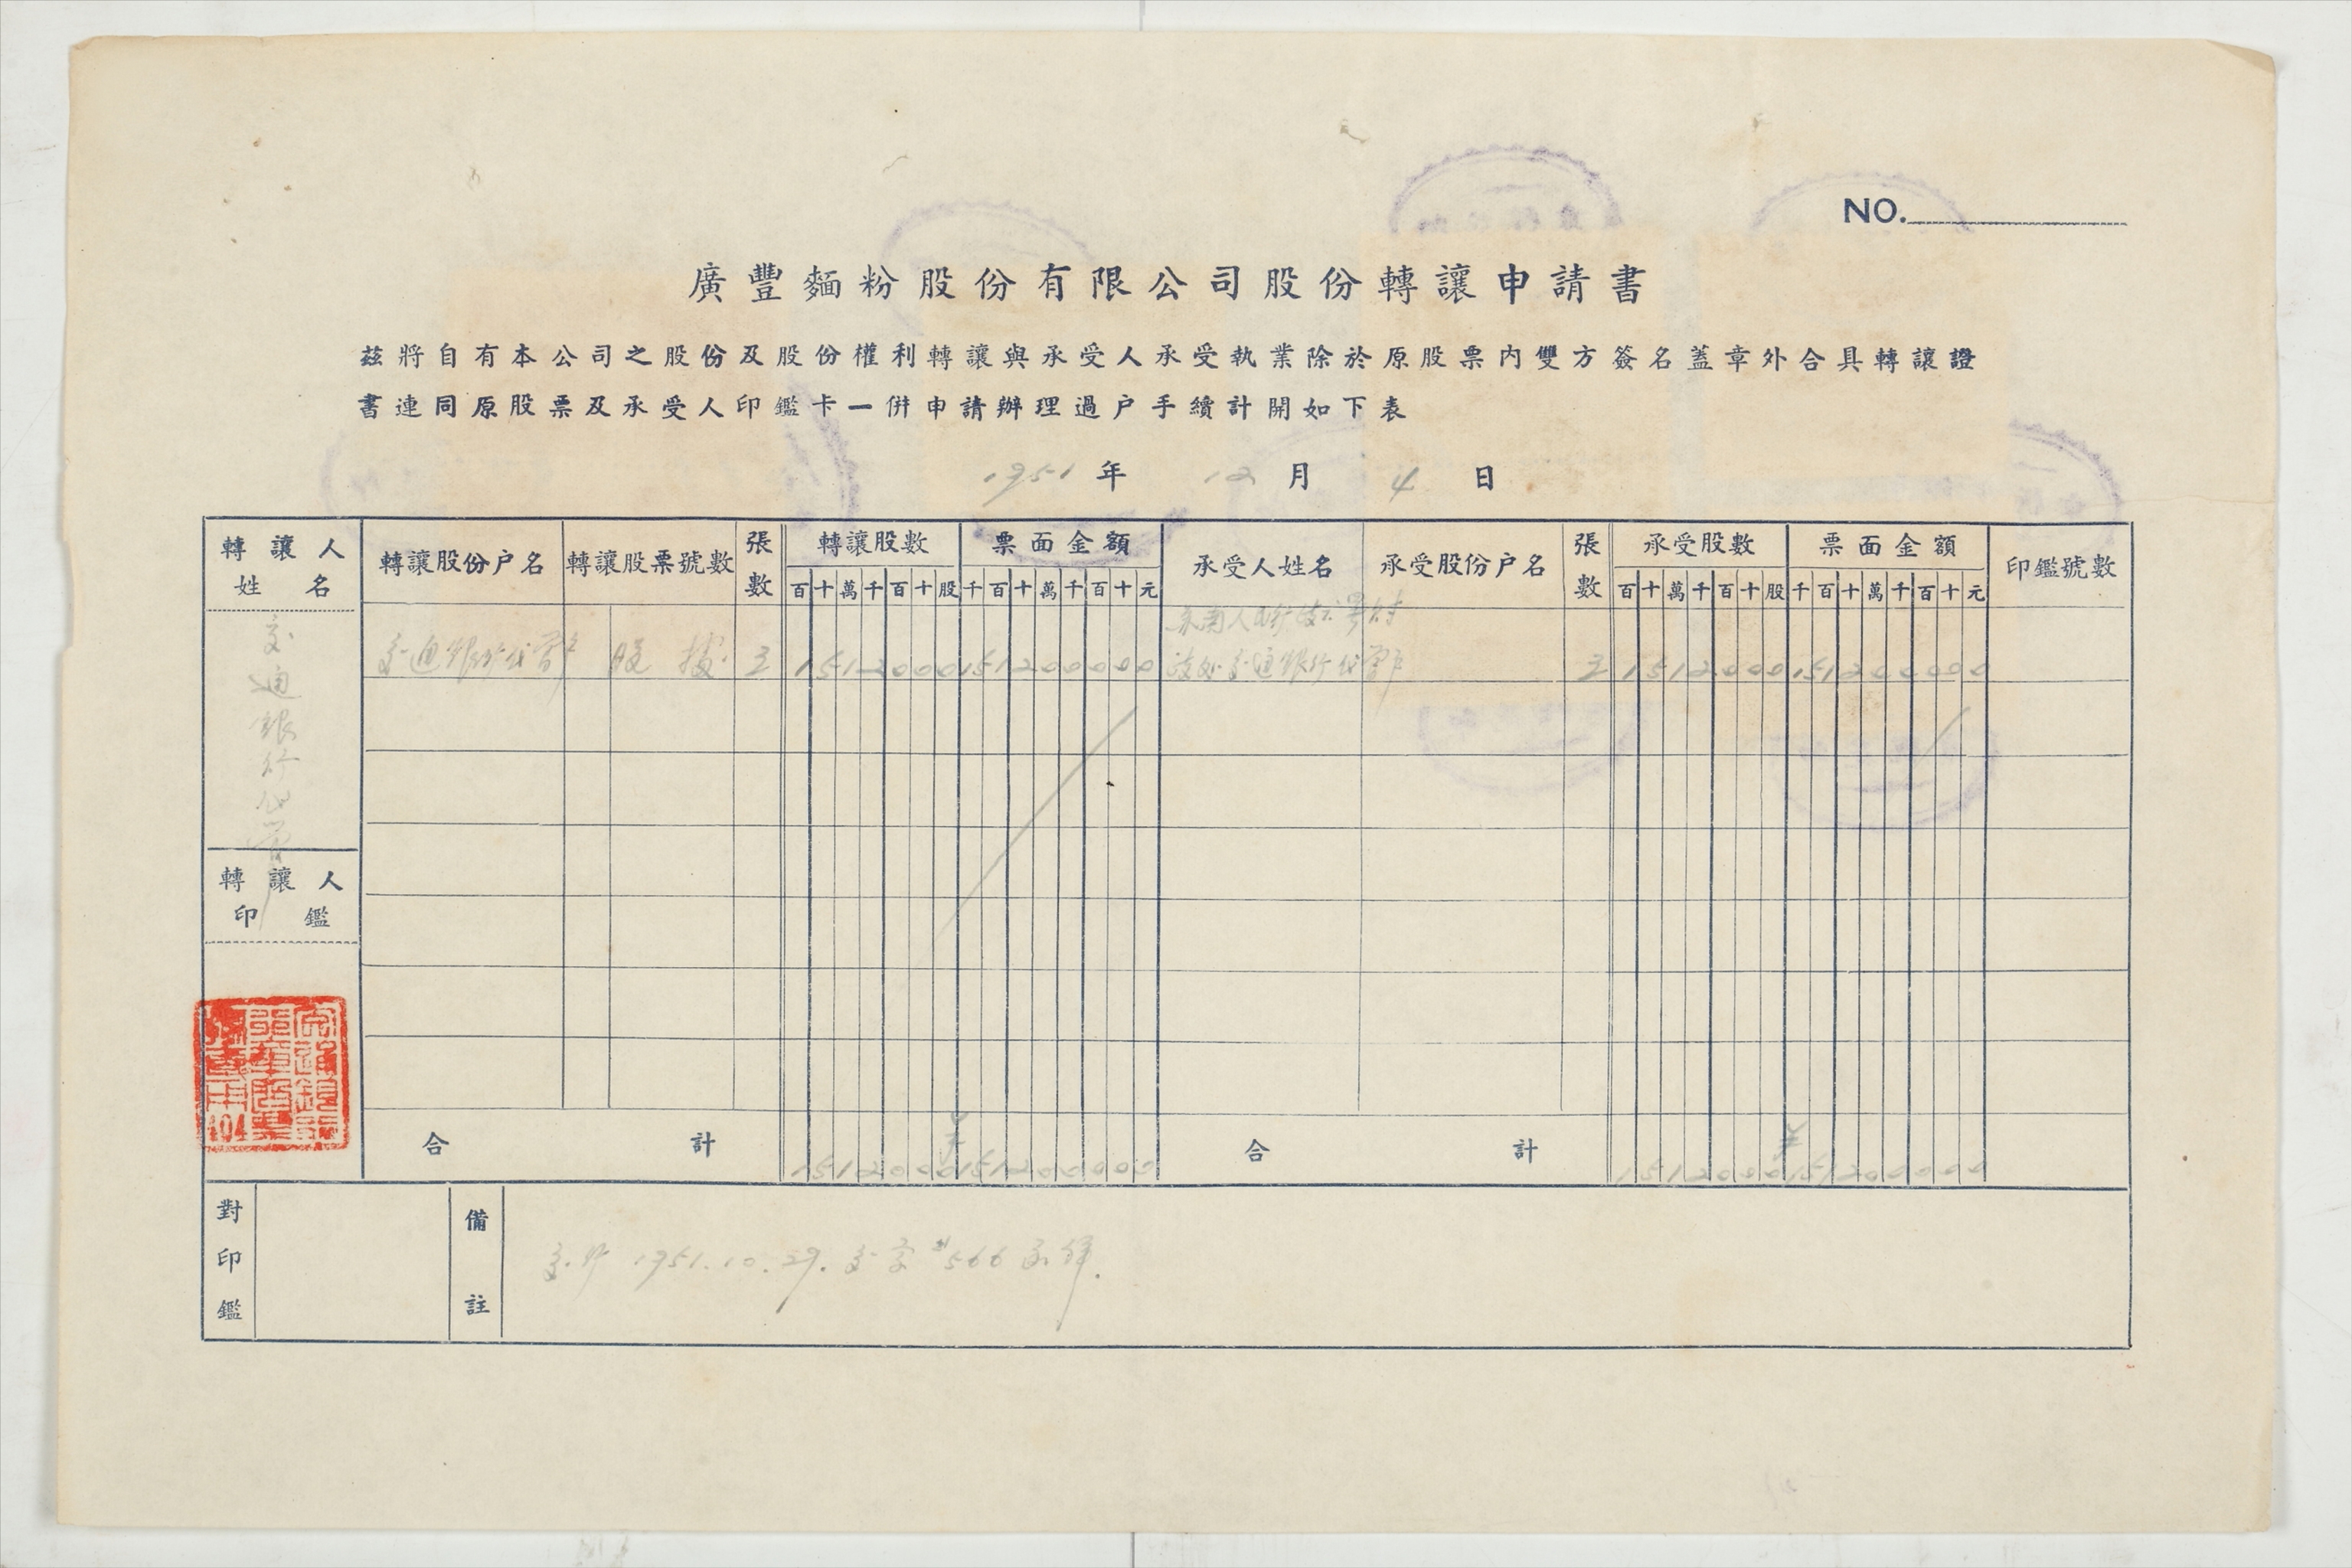 NO.
廣豐麵粉股份有限公司股份轉讓申請書
茲將自有本公司之股份及股份權利轉讓與承受人承受執業除於原股票內雙方簽名蓋章外合具轉讓證
書連同原股票及承受人印鑑卡一併申請辦理過户手續計開如下表
1951 年 12 月 4 日
轉讓人姓名 轉讓股份户名 轉讓股票號數 張數 轉讓股數 票面金額 承受人姓名 承受股份户名 張數 承受股數 票面金額 印鑑號數
百十萬千百十股 千百十萬千百十元 百十萬千百十股 千百十萬千百十元
交通銀行代管户 交通銀行代管户 股據 1512000 15120000 交通銀行代管户 1512000 15120000
轉讓人印鑑
合計 1512000 ¥15120000 合計 1512000 ¥15120000
對印鑑 備註 1951.10.29. 交 字 #566